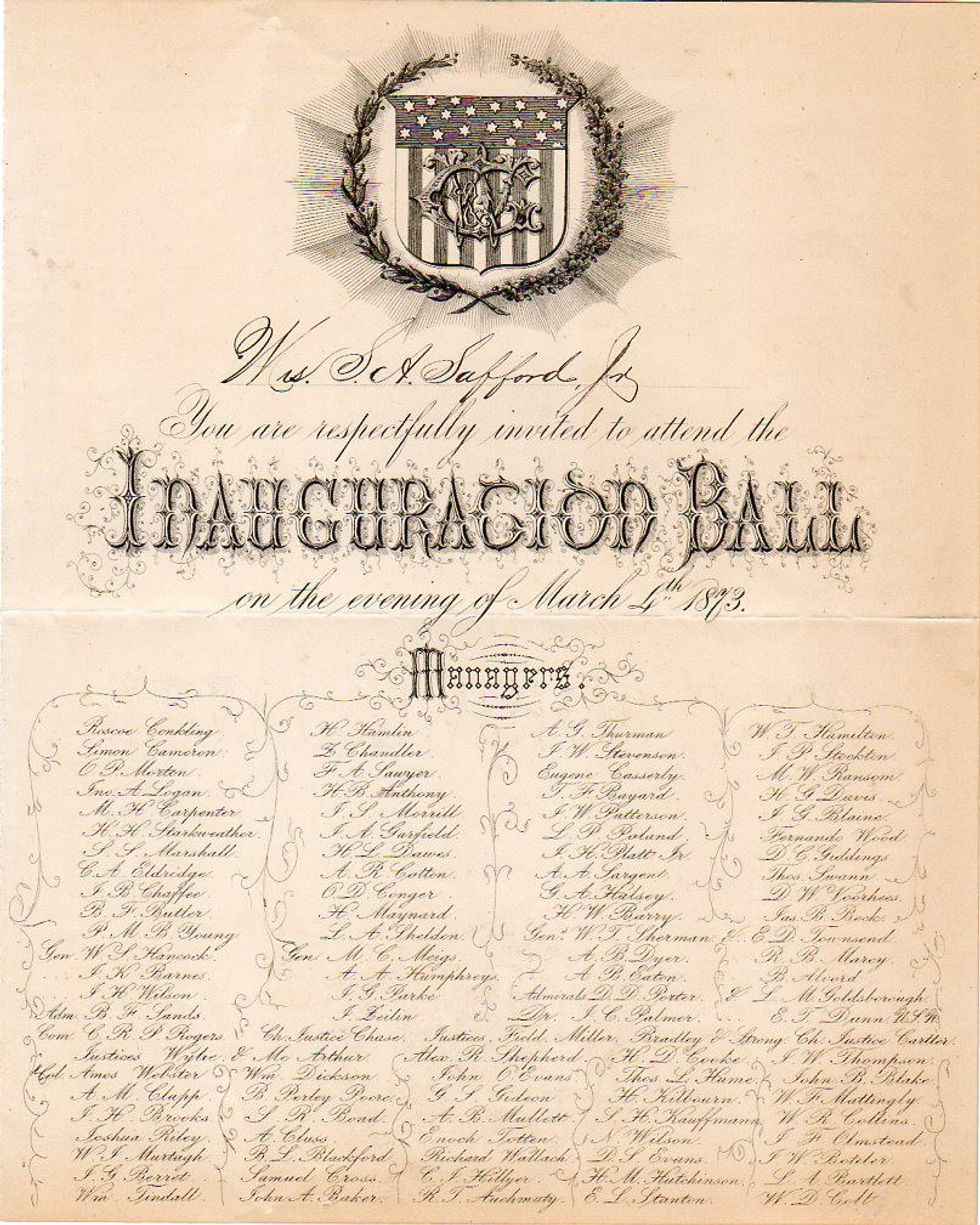 S. A. Safford, Jr
You are respectfully invited to attend the
INAUGURATION BALL
on the evening of March 4th 1873.
Managers.
Roscoe Conkling. H. Hamlin. A. G. Thurman W. T. Hamilton
Simon Cameron. Z. Chandler. J. W. Stevenson. J. P. Stockton
O. P. Morton. F. A. Sawyer. Eugene Casserly. M. W. Ransom.
Jno. A. Logan. H. B. Anthony. T. F. Bayard. H. G. Davis.
M. H. Carpenter J. S. Morrill. J. W. Patterson. J. G. Blaine.
H. H. Starkweather. J. A. Garfield. L. P. Poland. Fernando Wood
S. S. Marshall. H. L. Dawes. J. H. Platt Jr. D. C. Giddings.
C. A. Eldridge. A. R. Cotton. A. A. Sargent. Thos. Swann.
J. B. Chaffee. O. D. Conger. G. A. Halsey. D. W. Voorhees.
B. F. Butler. H. Maynard. H. W. Barry. Jas. B. Beck.
P. M. B. Young L. A. Sheldon. Genl. W. T. Sherman. & E. D. Townsend.
Gen W. S. Hancock. Gen M. C. Meigs. A. B. Dyer. R. B. Marcy.
J. K. Barnes. A. A. Humphreys. A. B. Eaton. B. Alvord.
J. H. Wilson. J. G. Parke Admirals D. D. Porter. & L. M. Goldsborough.
Adm. B. F. Sands. J. Zeilin. Dr. J. C. Palmer. E. T. Dunn, U.S.N.
Com. C. R. P. Rogers. Ch. Justice Chase, Justices, Field, Miller, Bradley & Strong. Ch. Justice Cartter.
Justices Wylie & Mc Arthur. Alex. R. Shepherd. H. D. Cooke. J. W. Thompson.
Col. Amos Webster Wm. Dickson. John O. Evans. Thos. L. Hume. John B. Blake.
A. M. Clapp. B. Perley Poore. G. S. Gideon H. Kilbourn. W. F. Mattingly.
J. H. Brooks. S. R. Bond. A. B. Mullett. S. H. Kauffmann W. R. Collins.
Joshua Riley. A. Cluss. Enoch Totten. N. Wilson. J. F. Olmstead.
W. J. Murtagh B. L. Blackford Richard Wallach. D. S. Evans. J. W. Boteler.
J. G. Berret. Samuel Cross. C. J. Hillyer. H. M. Hutchinson. L. A. Bartlett.
Wm. Tindall. John A. Baker. R. T. Auchmuty. E. L. Stanton. W. D. Colt